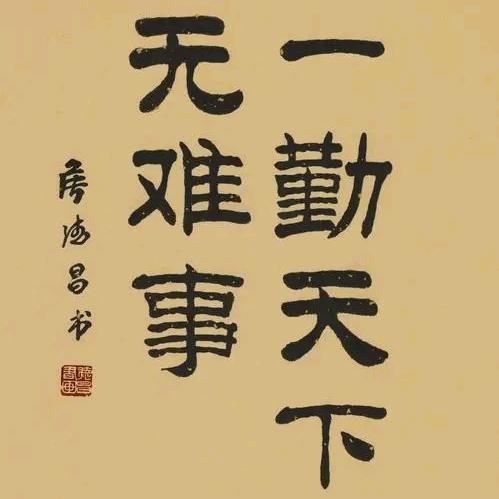 一勤天下
无难事
侯德昌书